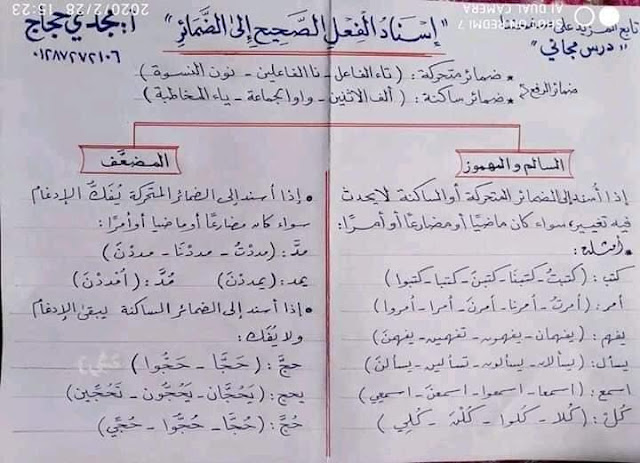 تابع المزيد على
"درس مجاني"
"إسنادُ الفعلِ الصَّحيحِ إلى الضَّمائرِ"
أ.مجدي حجاج
٠١٢٨٧٢٧٢١٠٦
2020/2/28 15:23
ON REDMI 7
AI DUAL CAMERA
ضمائر الرفع
* ضمائر متحركة: (تاء الفاعل - نا الفاعلين - نون النسوة)
* ضمائر ساكنة: (ألف الاثنين - واو الجماعة - ياء المخاطبة)
السالم والمهموز
إذا أسند إلى الضمائر المتحركة أو الساكنة لا يحدث
فيه تغيير، سواء كان ماضيًا أو مضارعًا أو أمرًا:
• أمثلة:
كتب: (كتبتُ - كتبنَا - كتبنَ - كتبا - كتبوا)
أمر: (أمرتُ - أمرنا - أمرنَ - أمرا - أمروا)
يفهم: (يفهمان - يفهمون - تفهمين - يفهمنَ)
يسأل: (يسألان - يسألون - تسألين - يسألنَ)
اسمع: (اسمعا - اسمعوا - اسمعنَ - اسمعي)
كُلْ: (كُلا - كُلوا - كُلْنَ - كُلِي)
المضعَّف
• إذا أسند إلى الضمائر المتحركة يُفَكُّ الإدغام
سواء كان مضارعًا أو ماضيا أو أمرًا:
مدَّ: (مددْتُ - مددْنَا - مددْنَ)
يمد: (يمددْنَ) مُدَّ: (امْددْنَ)
• إذا أسند إلى الضمائر الساكنة يبقى الإدغام
ولا يُفَك:
حجَّ: (حَجَّا - حَجُّوا)
يحج: (يَحُجَّان - يَحُجُّون - تَحُجِّين)
حُجَّ: (حُجَّا - حُجُّوا - حُجِّي)